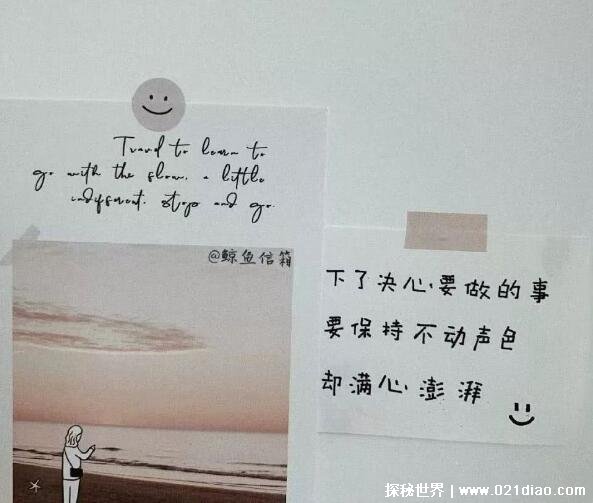 Travel to learn to
go with the slow, a little
indifferent. stop and go.
@鲸鱼信箱
下了决心要做的事
要保持不动声色
却满心澎湃
探秘世界 www.021diao.com